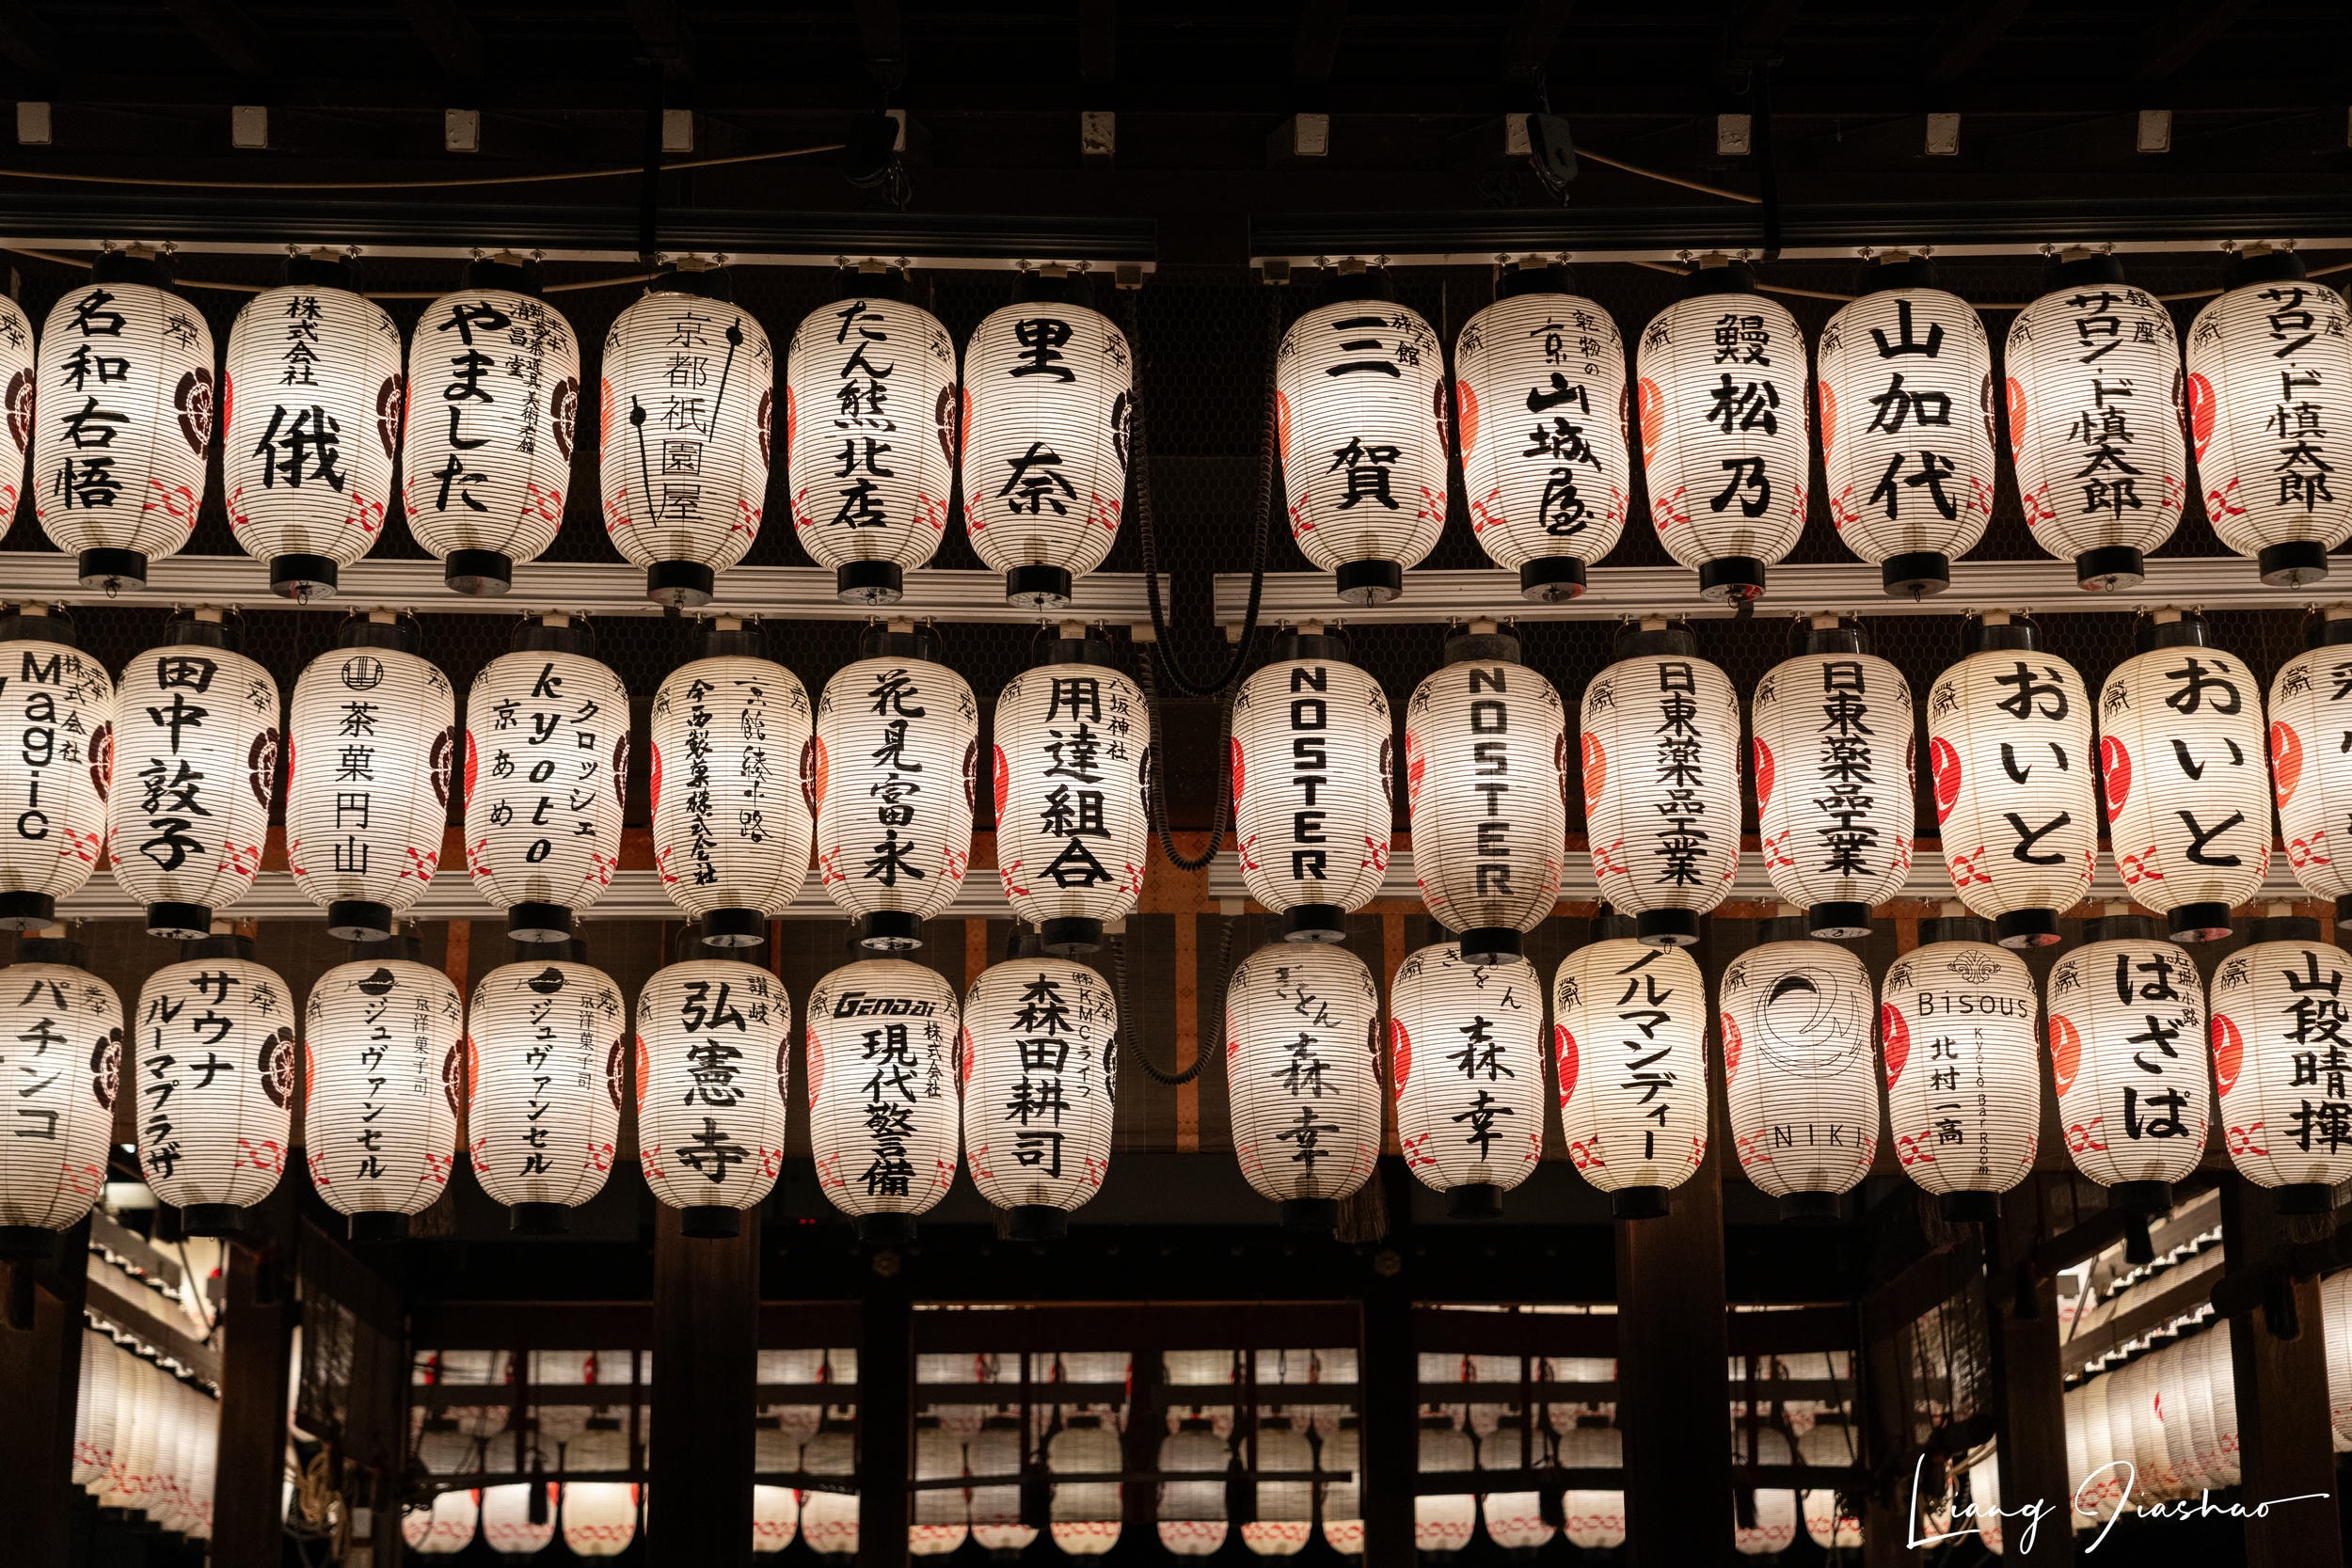 名和右悟
奉
株式会社
俄
やました
清昌堂
京都祇園屋
たん熊北店
里奈
旅館
三賀
乾物の
京山城屋
鰻
松乃
山加代
銀座
サロン・ド慎太郎
銀座
サロン・ド慎太郎
株式会社
Magic
田中敦子
奉
茶菓円山
クロッシェ
kyoto
京あめ
京都綾小路
今西製菓株式会社
花見富永
八坂神社
用達組合
NOSTER
NOSTER
日東薬品工業
日東薬品工業
おいと
おいと
パチンコ
奉
サウナ
ルーマプラザ
奉
京洋菓子司
ジュヴァンセル
京洋菓子司
ジュヴァンセル
奉
讃岐
弘憲寺
GENDAI
株式会社
現代警備
㈱KMCライフ
森田耕司
ぎをん
森幸
ぎをん
森幸
ノルマンディー
NIKI
Bisous
Kyoto Bar Room
北村一高
はざぱ
山段晴揮
Liang Jiashao